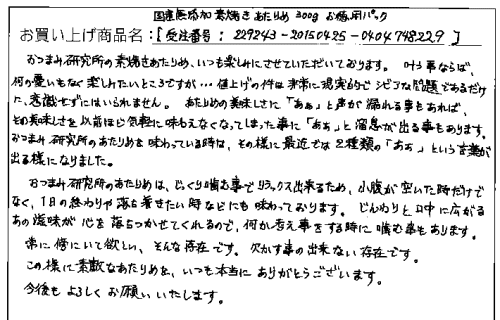 国産無添加 素焼き あたりめ 300g お徳用パック
お買い上げ商品名:[受注番号: 229243-20150425-0404748229]
おつまみ研究所の素焼きあたりめ、いつも楽しみにさせていただいております。叶う事ならば、
何の憂いもなく楽しみたいところですが…値上げの件は非常に現実的でシビアな問題であるだけ
に、意識せずにはいられません。あたりめの美味しさに「あぁ」と声が漏れる事もあれば、
その美味しさを以前ほど気軽に味わえなくなってしまった事に「あぁ」と溜息が出る事もあります。
おつまみ研究所のあたりめを味わっている時は、その様に最近では2種類の「あぁ」という言葉が
出る様になりました。
おつまみ研究所のあたりめは、じっくり噛む事でリラックス出来るため、小腹が空いた時だけで
なく、1日の終わりや落ち着きたい時などにも味わっております。じんわりと口中に広がる
あの滋味が心を落ちつかせてくれるので、何か考え事をする時に噛む事もあります。
常に傍にいて欲しい、そんな存在です。欠かす事の出来ない存在です。
この様に素敵なあたりめを、いつも本当にありがとうございます。
今後もよろしくお願いいたします。